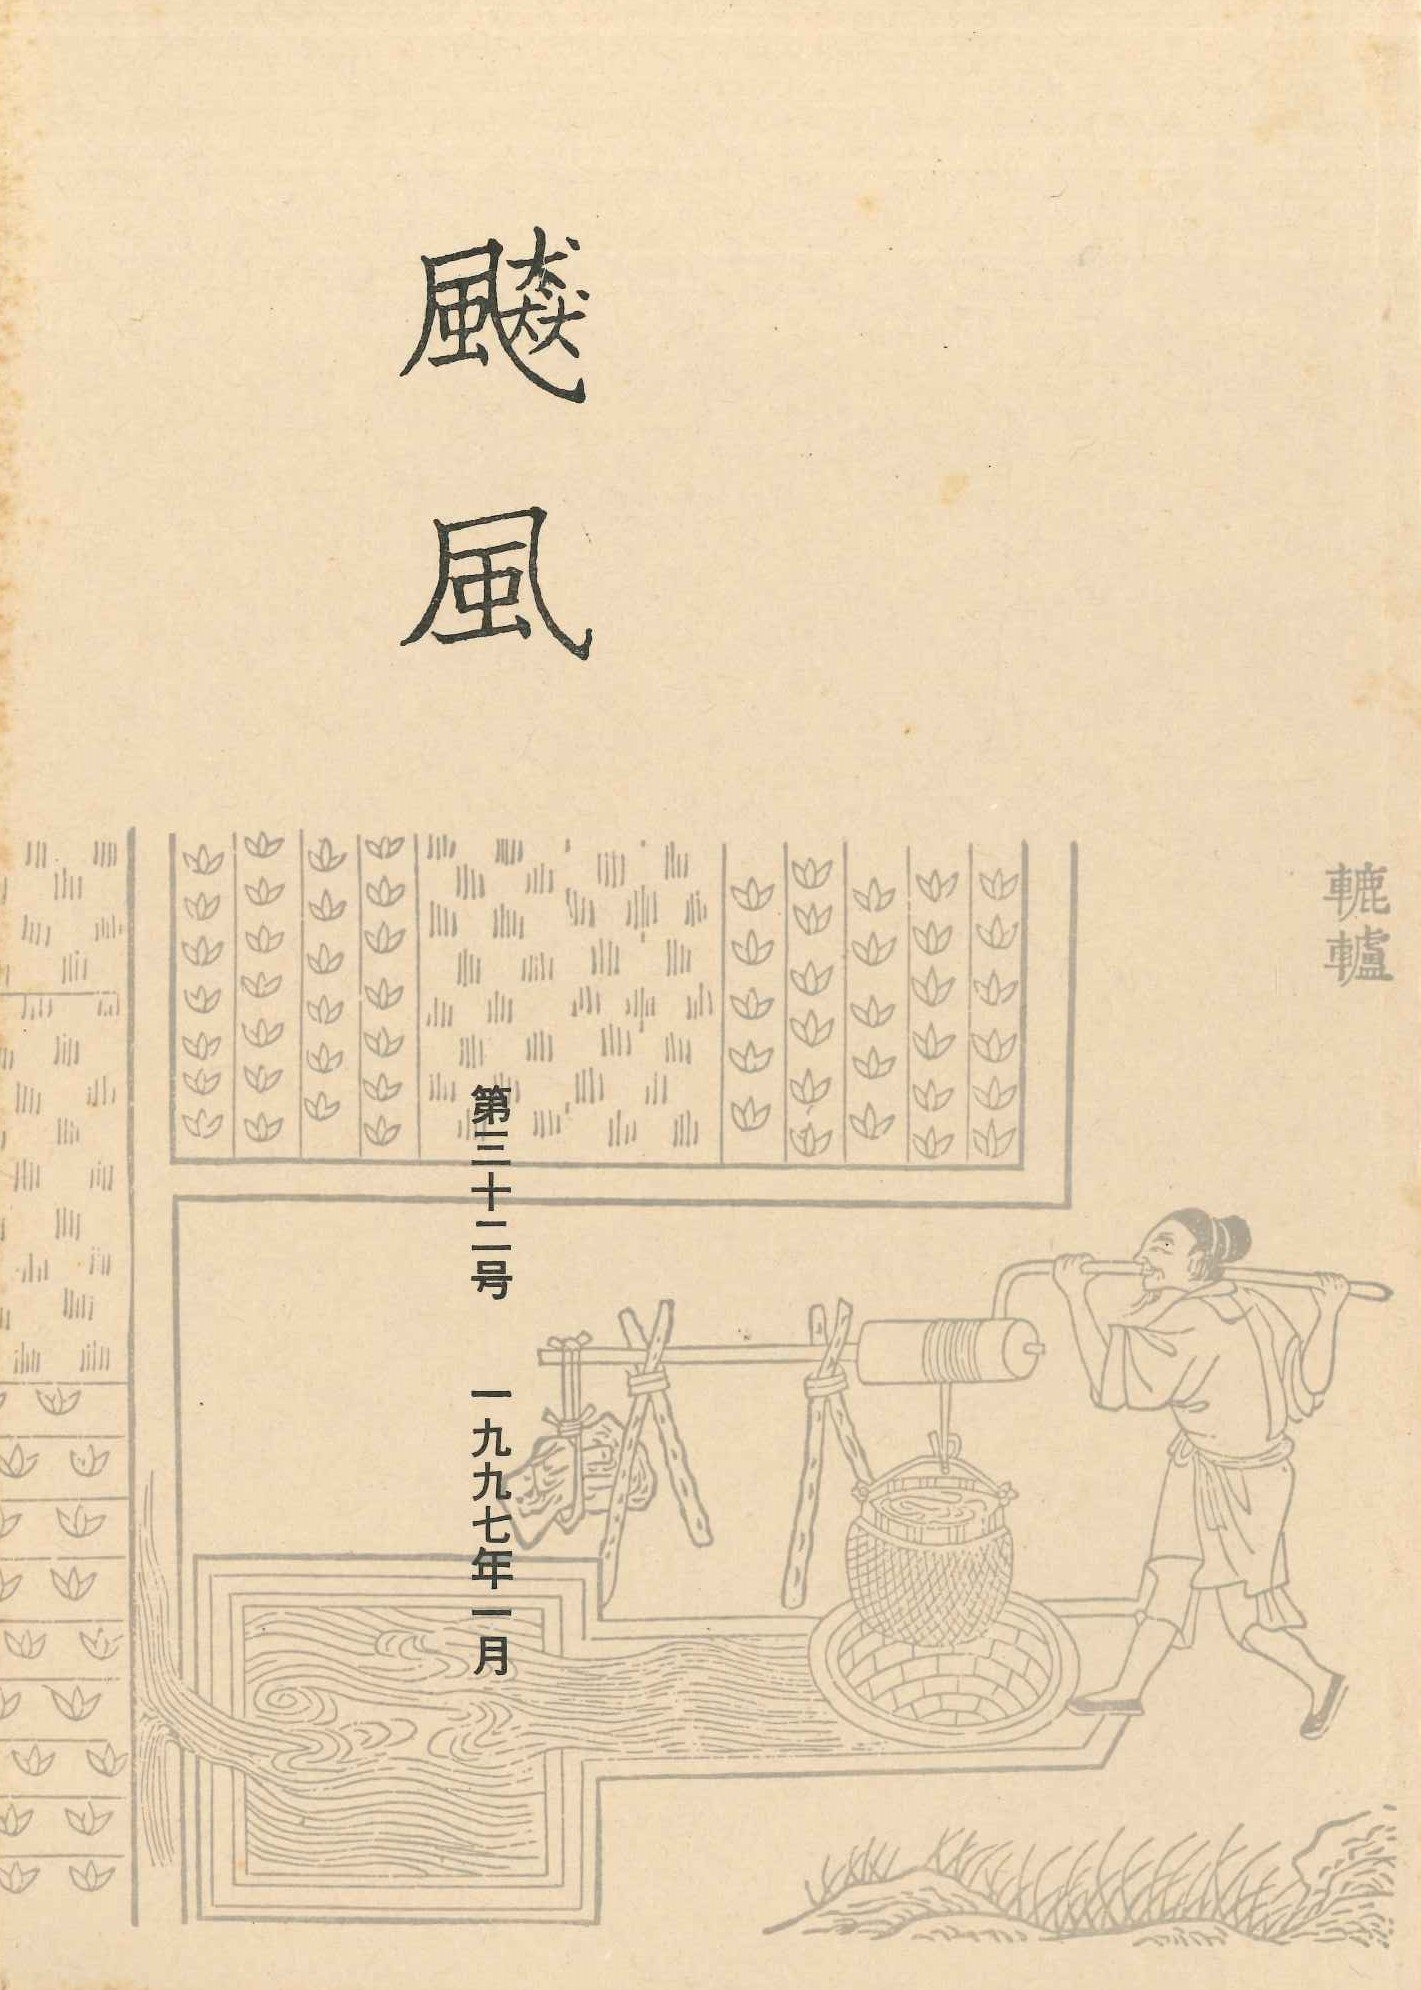 轆轤
飈風
第三十二号　一九九七年一月